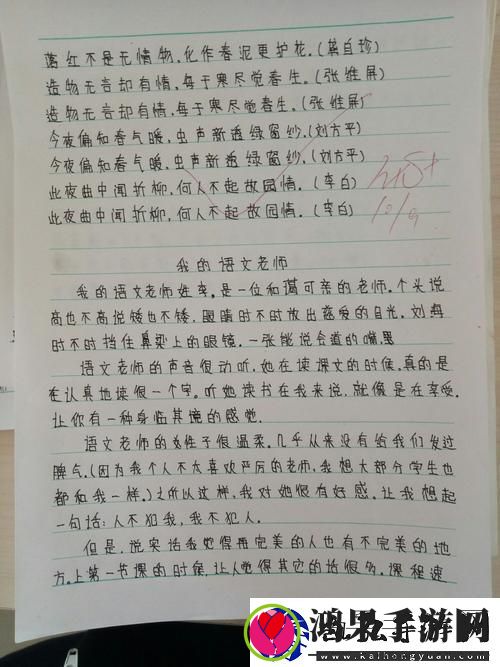 落红不是无情物,化作春泥更护花。(龚自珍)
造物无言却有情,每于寒尽觉春生。(张维屏)
造物无言却有情,每于寒尽觉春生。(张维屏)
今夜偏知春气暖,虫声新透绿窗纱。(刘方平)
今夜偏知春气暖,虫声新透绿窗纱。(刘方平)
此夜曲中闻折柳,何人不起故园情。(李白)
此夜曲中闻折柳,何人不起故园情。(李白)
我的语文老师
我的语文老师姓李。是一位和蔼可亲的老师。个头说
高也不高说矮也不矮,眼睛时不时放出慈爱的目光。刘海
时不时挡住鼻梁上的眼镜。一张能说会道的嘴
语文老师的声音很动听,她在读课文的时候,真的是
在认真地读很一个字。听她读书在我来说,就像是在享受。
让你有一种身临其境的感觉.
语文老师的性子很温柔。几乎从来没有给我们发过
脾气。(因为我个人不太喜欢严厉的老师,我想大部分学生也
都和我一样。)之所以这样,我对她很有好感。让我想起
一句话:人不犯我,我不犯人.
但是,说实话我觉得再完美的人也有不完美的地
方。上第一节课的时候,让人觉得其它的话很多。课程速
鸿果手游网
www.kaihongyuan.com